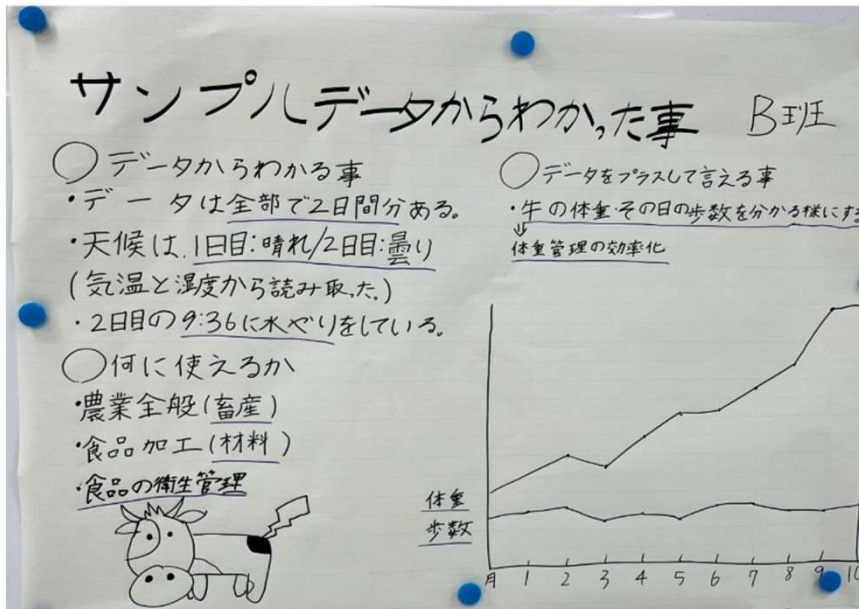 サンプルデータからわかった事 B班
○データからわかる事
・データは全部で2日間分ある。
・天候は、1日目:晴れ/2日目:曇り
(気温と湿度から読み取った。)
・2日目の9:36に水やりをしている。
○何に使えるか
・農業全般(畜産)
・食品加工(材料)
・食品の衛生管理
○データをプラスして言える事
・牛の体重・その日の歩数を分かる様にする
⇓
体重管理の効率化
体重
歩数
月 1 2 3 4 5 6 7 8 9 10